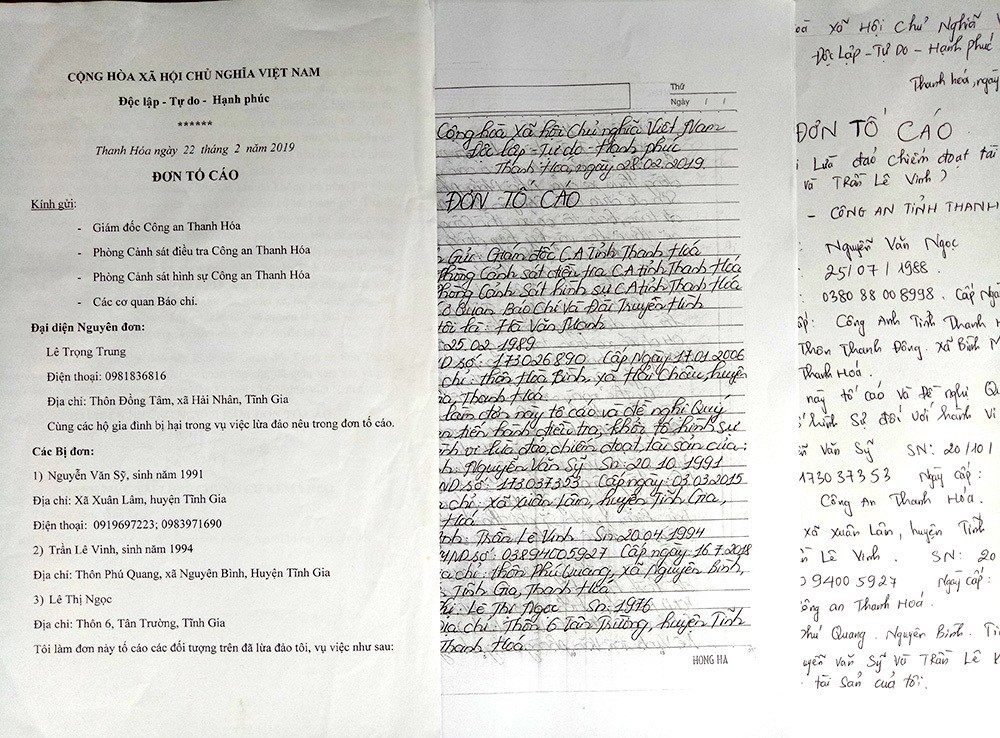 CỘNG HÒA XÃ HỘI CHỦ NGHĨA VIỆT NAM
Độc lập - Tự do - Hạnh phúc
******
Thanh Hóa ngày 22 tháng 2 năm 2019
ĐƠN TỐ CÁO
Kính gửi:
- Giám đốc Công an Thanh Hóa
- Phòng Cảnh sát điều tra Công an Thanh Hóa
- Phòng Cảnh sát hình sự Công an Thanh Hóa
- Các cơ quan Báo chí.
Đại diện Nguyên đơn:
Lê Trọng Trung
Điện thoại: 0981836816
Địa chỉ: Thôn Đồng Tâm, xã Hải Nhân, Tĩnh Gia
Cùng các hộ gia đình bị hại trong vụ việc lừa đảo nêu trong đơn tố cáo.
Các Bị đơn:
1) Nguyễn Văn Sỹ, sinh năm 1991
Địa chỉ: Xã Xuân Lâm, huyện Tĩnh Gia
Điện thoại: 0919697223; 0983971690
2) Trần Lê Vinh, sinh năm 1994
Địa chỉ: Thôn Phú Quang, xã Nguyên Bình, Huyện Tĩnh Gia
3) Lê Thị Ngọc
Địa chỉ: Thôn 6, Tân Trường, Tĩnh Gia
Tôi làm đơn này tố cáo các đối tượng trên đã lừa đảo tôi, vụ việc như sau:
Thứ
Ngày / /
Cộng hòa Xã hội Chủ nghĩa Việt Nam
Độc lập - Tự do - Hạnh phúc
Thanh Hoá, ngày 28.02.2019
ĐƠN TỐ CÁO
Gửi: Giám đốc C.A Tỉnh Thanh Hoá
Phòng Cảnh sát điều tra C.A tỉnh Thanh Hoá
Phòng Cảnh sát hình sự C.A tỉnh Thanh Hoá
Quan Báo Chí Và Đài Truyền Hình
tôi là: Hà Văn Mạnh
25.02.1989
ND số: 173026890 Cấp Ngày 17.01.2006
chỉ: thôn Hoà Bình, xã Hải Châu, huyện
Thanh Hoá
làm đơn này tố cáo và đề nghị Quý
tiến hành điều tra, khởi tố hình sự
vi lừa đảo, chiếm đoạt tài sản của:
Nguyễn Văn Sỹ Sn: 20.10.1991
ND số: 173037353 Cấp ngày: 03.03.2015
chỉ: xã Xuân Lâm, huyện Tĩnh Gia,
Hoá
Trần Lê Vinh Sn: 20.04.1994
số: 03894005927 Cấp ngày 16.7.2018
chỉ: thôn Phú Quang, xã Nguyên Bình,
Tĩnh Gia, Thanh Hoá
Lê Thị Ngọc Sn: 1976
chỉ: Thôn 6 Tân Trường, huyện Tĩnh
Thanh Hoá
HONG HA
Xã Hội Chủ Nghĩa
Độc Lập - Tự Do - Hạnh phúc
Thanh hoá, ngày
ĐƠN TỐ CÁO
Lừa đảo chiếm đoạt tài
và Trần Lê Vinh)
- CÔNG AN TỈNH THANH
Nguyễn Văn Ngọc
25/07/1988.
0380 88 00 8998. Cấp Ngà
Công Anh Tỉnh Thanh H
Thôn Thanh Đông. Xã Bình M
Thanh Hoá.
này tố cáo và đề nghị Qu
hình sự đối với hành vi
Văn Sỹ SN: 20/10/
173037353 Ngày cấp:
Công An Thanh Hoá.
xã Xuân Lâm, huyện Tĩnh
Lê Vinh. SN: 20
9400 5927 Ngày cấp:
ông an Thanh Hoá.
Phú Quang. Nguyên Bình. Tĩ
uyễn Văn Sỹ Và Trần Lê V
tài sản của tôi.